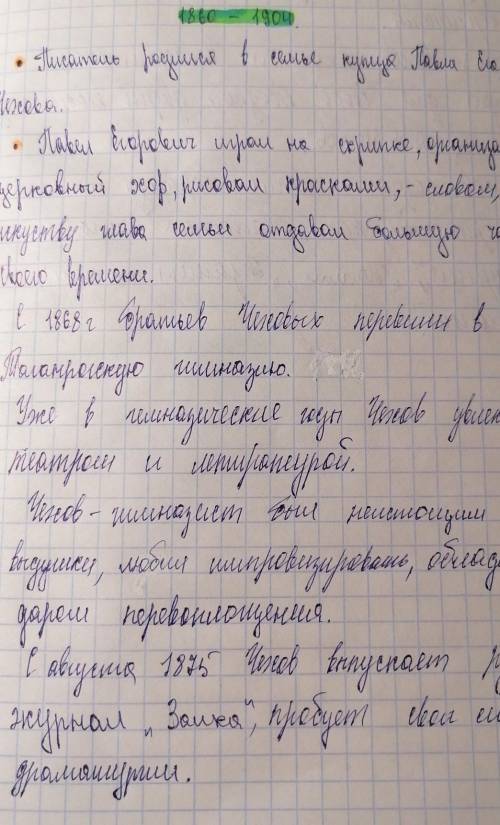 1860 - 1904.
• Писатель родился в семье купца Павла Его
Чехова.
• Павел Егорович играл на скрипке, организа
церковный хор, рисовал красками, - словом,
искуству глава семьи отдавал большую ча
своего времени.
С 1868 г братьев Чеховых перевели в
Таганрогскую гимназию.
Уже в гимназические годы Чехов увлек
театром и литературой.
Чехов - гимназист был неистощим
выдумки, любил импровизировать, облада
даром перевоплощения.
С августа 1875 Чехов выпускает ру
журнал „Заика", пробует свои си
драматургии.